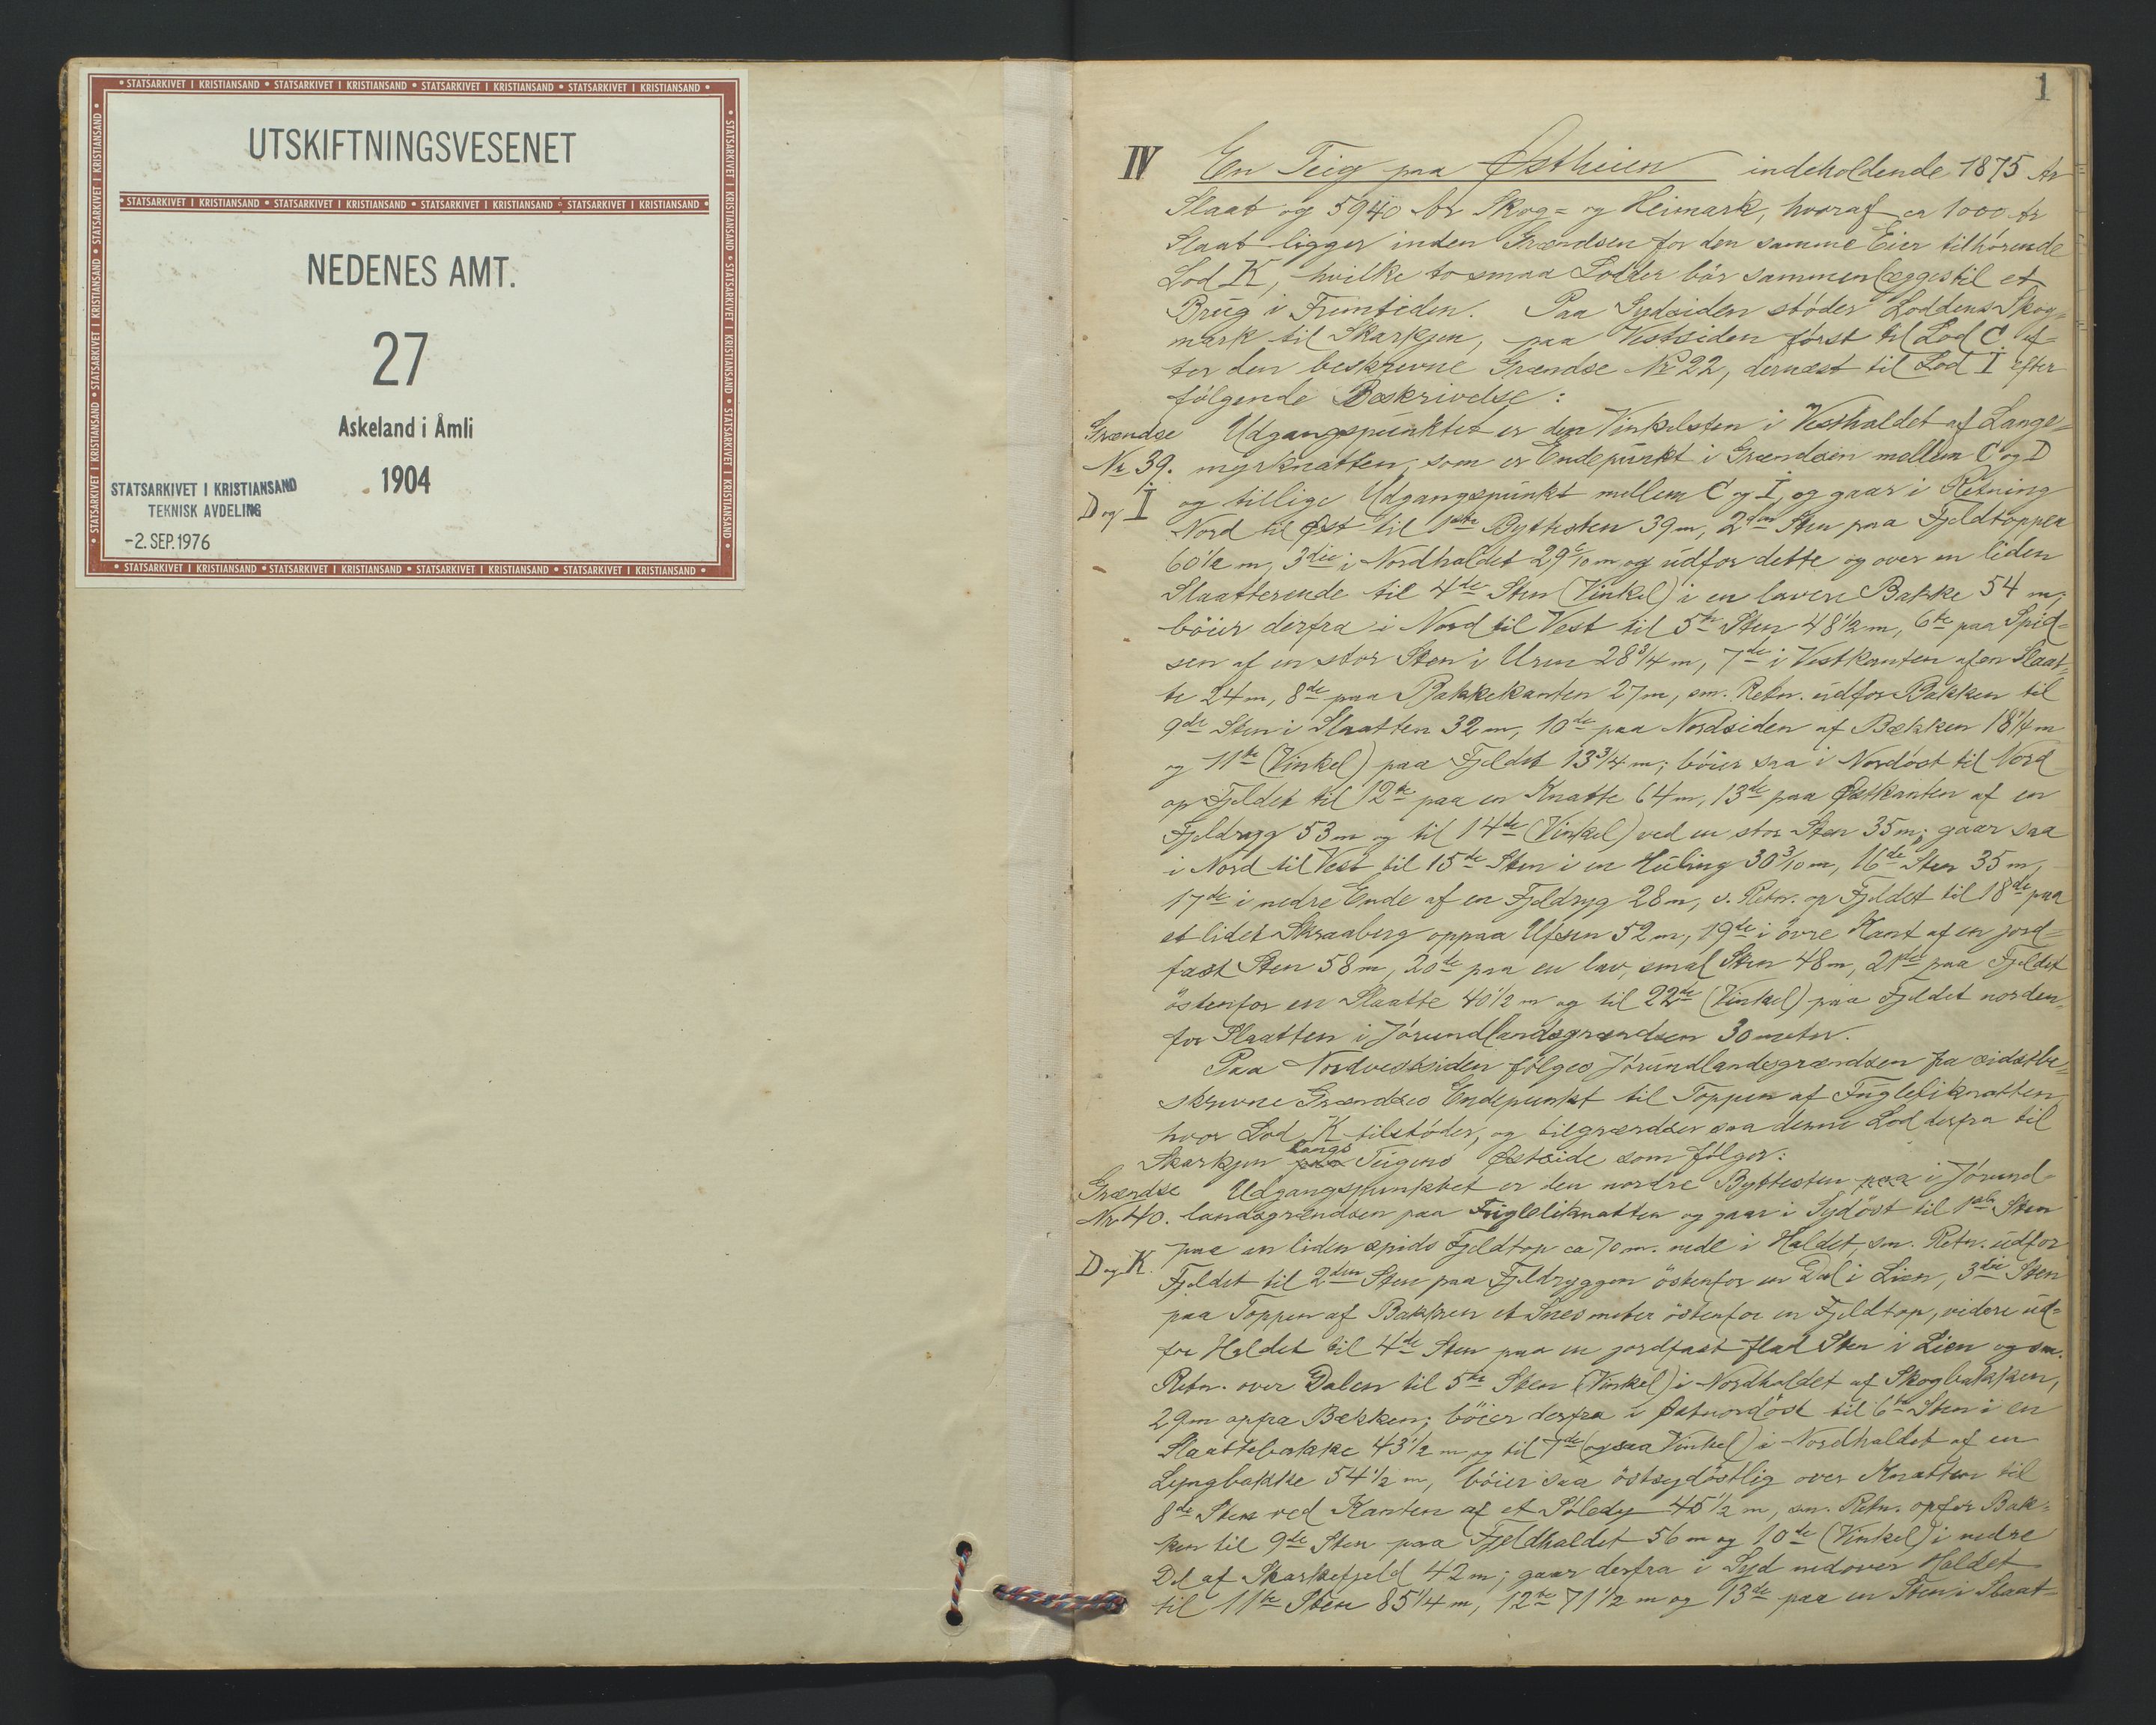 • STATSARKIVET I KRISTIANSAND • STATSARKIVET I KRISTIANSAND • STATSARKIVET I KRISTIANSAND • STATSARKIVET I KRISTIANSAND •
UTSKIFTNINGSVESENET
• STATSARKIVET I KRISTIANSAND • STATSARKIVET I KRISTIANSAND • STATSARKIVET I KRISTIANSAND • STATSARKIVET I KRISTIANSAND •
NEDENES AMT.
27
Askeland i Åmli
1904
STATSARKIVET I KRISTIANSAND
TEKNISK AVDELING
-2. SEP. 1976
• STATSARKIVET I KRISTIANSAND • STATSARKIVET I KRISTIANSAND • STATSARKIVET I KRISTIANSAND • STATSARKIVET I KRISTIANSAND •
1
IV En Teig paa Østheien indeholdende 1875 Ar
Slaat og 5940 Ar Skog= og Heimark, hvoraf ca 1000 Ar
Slaat ligger inden Grændsen for den samme Eier tilhörende
Lod K, hvilke to smaa Lodder bör sammenlægges til et
Brug i Fremtiden. Paa Sydsiden stöder Loddens Skog=
mark til Skarkjen, paa Vestsiden först til Lod C ef=
ter den beskrevne Grændse Nr 22, dernæst til Lod I efter
fölgende Beskrivelse:
Grændse Udgangspunktet er den Vinkelsten i Vesthaldet af Lange=
Nr 39. myrknatten, som er Endepunkt i Grændsen mellem C og D
D og I og tillige Udgangspunkt mellem C og I, og gaar i Retning
Nord til Øst til 1ste Byttesten 39 m, 2den Sten paa Fjeldtoppen
60 1/2 m, 3die i Nordhaldet 29 m og udfor dette og over en liden
Slaatterende til 4de Sten (Vinkel) i en lavere Bakke 54 m;
böier derfra i Nord til Vest til 5te Sten 48 1/2 m, 6te paa Spid=
sen af en stor Sten i Uren 28 3/4 m, 7de i Vestkanten af en Slaat=
te 24 m, 8de paa Bakkekanten 27 m, sm. Retn. udfor Bakken til
9de Sten i Slaatten 32 m, 10de paa Nordsiden af Bækken 18 1/4 m
og 11te (Vinkel) paa Fjeldet 13 3/4 m; böier saa i Nordöst til Nord
op Fjeldet til 12te paa en Knatte 64 m, 13de paa Østkanten af en
Fjeldrygg 53 m og til 14de (Vinkel) ved en stor Sten 35 m; gaar saa
i Nord til Vest til 15de Sten i en Huling 30 3/10 m, 16de Sten 35 m,
17de i nedre Ende af en Fjeldryg 28 m, s. Retn. op Fjeldet til 18de paa
et lidet Skraaberg oppaa Ufsen 52 m, 19de i övre Kant af en jord=
fast Sten 58 m, 20de paa en lav, smal Sten 48 m, 21de paa Fjeldet
östenfor en Slaatte 40 1/2 m og til 22de (Vinkel) paa Fjeldet norden=
for Slaatten i Jörundlandsgrændsen 30 meter.
Paa Nordvestsiden fölges Jörundlandsgrændsen fra sidstbe=
skrevne Grændses Endepunkt til Toppen af Fugleliknatten,
hvor Lod K tilstöder, og tilgrændser saa denne Lod derfra til
Skarkjen langs Teigens Østside som fölger:
Grændse Udgangspunktet er den nordre Byttesten paa i Jörund=
Nr 40. landsgrændsen paa Fugleliknatten og gaar i Sydöst til 1ste Sten
D og K. paa en liden spids Fjeldtop ca 70 m. nede i Haldet, sm. Retn. udfor
Fjeldet til 2den Sten paa Fjeldryggen östenfor en Dal i Lien, 3die Sten
paa Toppen af Bakken et Snes meter östenfor en Fjeldtop, videre ud=
for Haldet til 4de Sten paa en jordfast flad Sten i Lien og sm.
Retn. over Dalen til 5te Sten (Vinkel) i Nordhaldet af Skogbakken,
29 m opfra Bækken; böier derfra i Østnordöst til 6te Sten i en
Slaattebakke 43 1/2 m og til 7de (ogsaa Vinkel) i Nordhaldet af en
Lyngbakke 54 1/2 m, böier saa östsydöstlig over Knatten til
8de Sten ved Kanten af et 45 1/2 m, sm. Retn. opfor Bak=
ken til 9de Sten paa Fjeldhaldet 56 m og 10de (Vinkel) i nedre
Del af Skarkefjeld 42 m; gaar derfra i Syd nedover Haldet
til 11te Sten 85 1/4 m, 12te 71 1/2 m og 13de paa en Sten i Slaat=